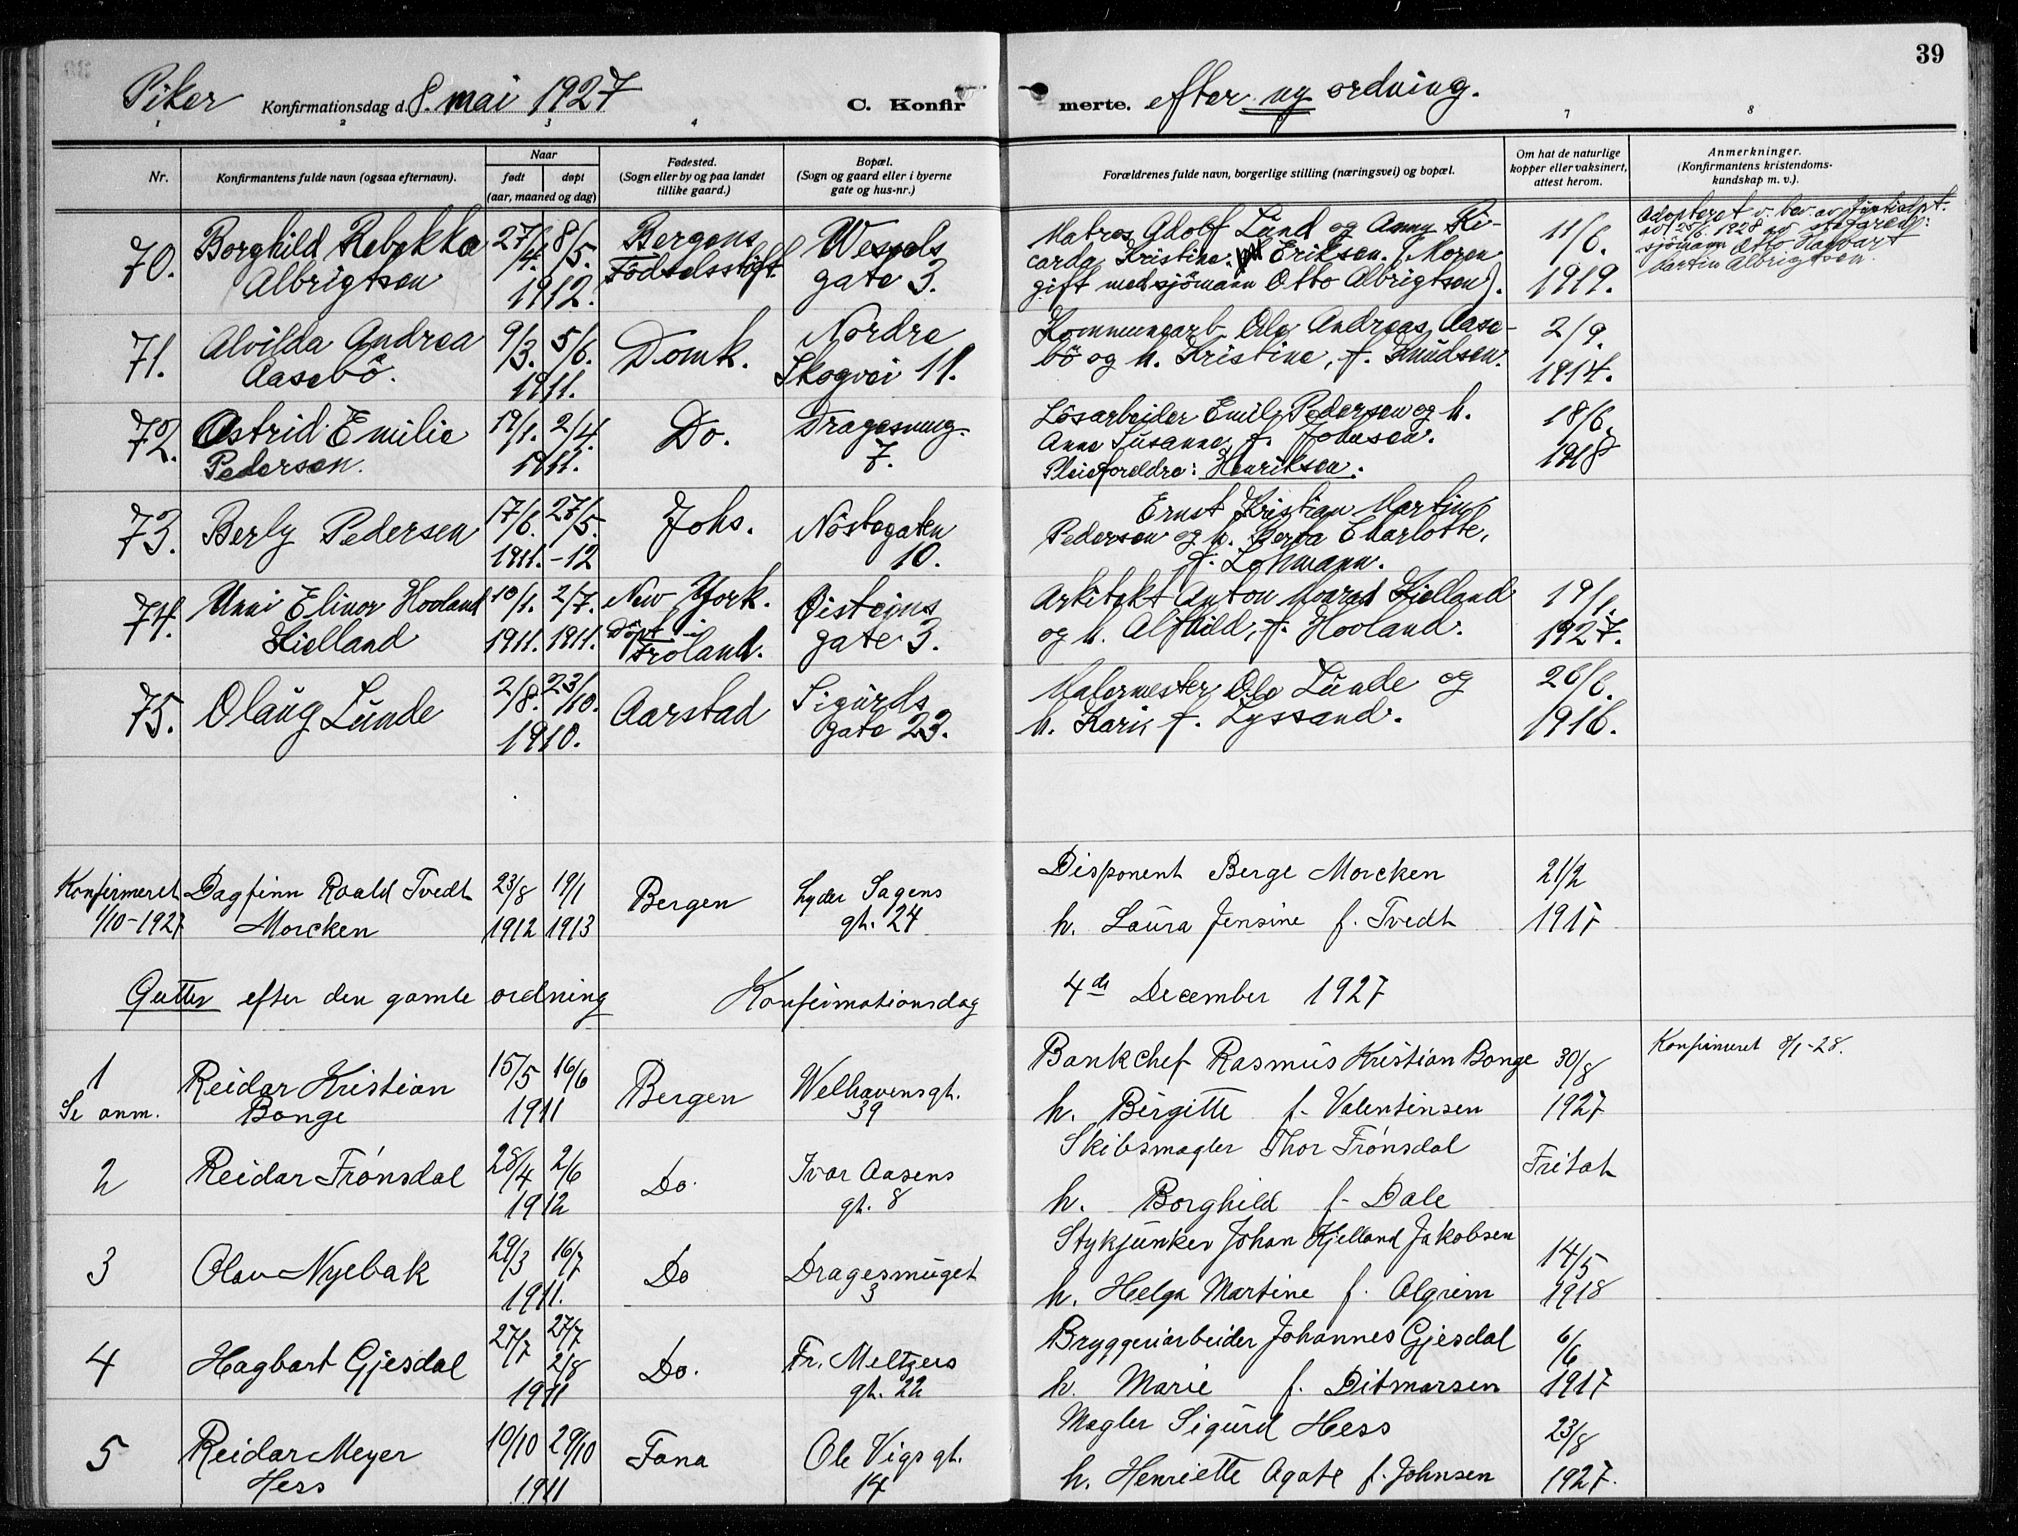 39
Piker Konfirmationsdag d. 8. mai 1927 C. Konfirmerte. efter ny ordning.
1 2 3 4 7 8
Nr.
Konfirmantens fulde navn (ogsaa efternavn).
Naar
født døpt
(aar, maaned og dag)
Fødested.
(Sogn eller by og paa landet
tillike gaard.)
Bopæl.
(Sogn og gaard eller i byerne
gate og hus-nr.)
Forældrenes fulde navn, borgerlige stilling (næringsvei) og bopæl.
Om hat de naturlige
kopper eller vaksinert,
attest herom.
Anmerkninger.
(Konfirmantens kristendoms-
kundskap m. v.).
70.
Borghild Rebekka
Albrigtsen
27/4. 8/5.
1912.
Bergens
Fødselsstift.
Wessels
gate 3.
Matros Adolf Lund og Anna Ri-
carda Kristine Eriksen. (Moren
gift med sjömann Otto Albrigtsen).
11/6.
1919.
Adopteret v. bev. av
av 25/6. 1928 av
sjömann Otto Hagbart
Martin Albrigtsen.
71.
Alvilda Andrea
Aasebö.
9/3. 5/6.
1911.
Domk.
Nordre
Skogvei 11.
Kommunearb. Ole Andreas Aase-
bö og h. Kristine, f. Knudsen.
2/9.
1914.
72.
Astrid Emilie
Pedersen.
19/1. 2/4.
1911.
Do.
Dragesmug.
7.
Lösarbeider Emil Pedersen og h.
Anne Susanne f. Johnsen.
Pleieforeldre: Henriksen.
18/6.
1918
73.
Berly Pedersen
17/6. 27/5.
1911. -12
Johs.
Nöstegaten
10.
Ernst Kristian Martin
Pedersen og h. Berta Charlotte,
f. Lohmann.
74.
Unni Elinor Hooland
Kielland
10/1. 2/7.
1911. 1911.
New York.
Döpt i
Froland.
Øisteins
gate 3.
Arkitekt Anton Konrad Kielland
og h. Alfhild, f. Hooland.
19/1.
1927.
75.
Olaug Lunde
2/8. 23/10.
1910.
Aarstad
Sigurds
gate 23.
Malermester Ole Lunde og
h. Kari f. Lyssand.
26/6.
1916.
Konfirmeret
1/10-1927
Dagfinn Roald Tvedt
Morcken
23/8 19/1
1912 1913
Bergen
Lyder Sagens
gt. 24
Disponent Berge Morcken
h. Laura Jensine f. Tvedt
21/2
1917
Gutter efter den gamle ordning Konfirmationsdag 4de December 1927
1
Se anm.
Reidar Kristian
Bonge
15/5 16/6
1911
Bergen
Welhavensgt.
39
Bankchef Rasmus Kristian Bonge
h. Birgitte f. Valentinsen
30/8
1927
Konfirmeret 8/1-28.
2
Reidar Frónsdal
28/4 2/6
1912
Do.
Ivar Aasens
gt. 8
Skibsmægler Thor Frónsdal
h. Borghild f. Dale
Fritat
3
Olav Nyebak
29/3 16/7
1911.
Do
Dragesmuget
3
Stykjunker Johan Kjelland Jakobsen
h. Helga Martine f. Algrim
14/5
1918
4
Hagbart Gjesdal
27/7 27/7
2/8
1911
Do.
Fr. Meltzers
gt. 22
Bryggeriarbeider Johannes Gjesdal
h. Marie f. Ditmarsen
6/6
1917
5
Reidar Meyer
Hess
10/10 29/10
1911
Fana
Ole Vigs gt.
17
Mægler Sigurd Hess
h. Henriette Agate f. Johnsen
23/8
1927.